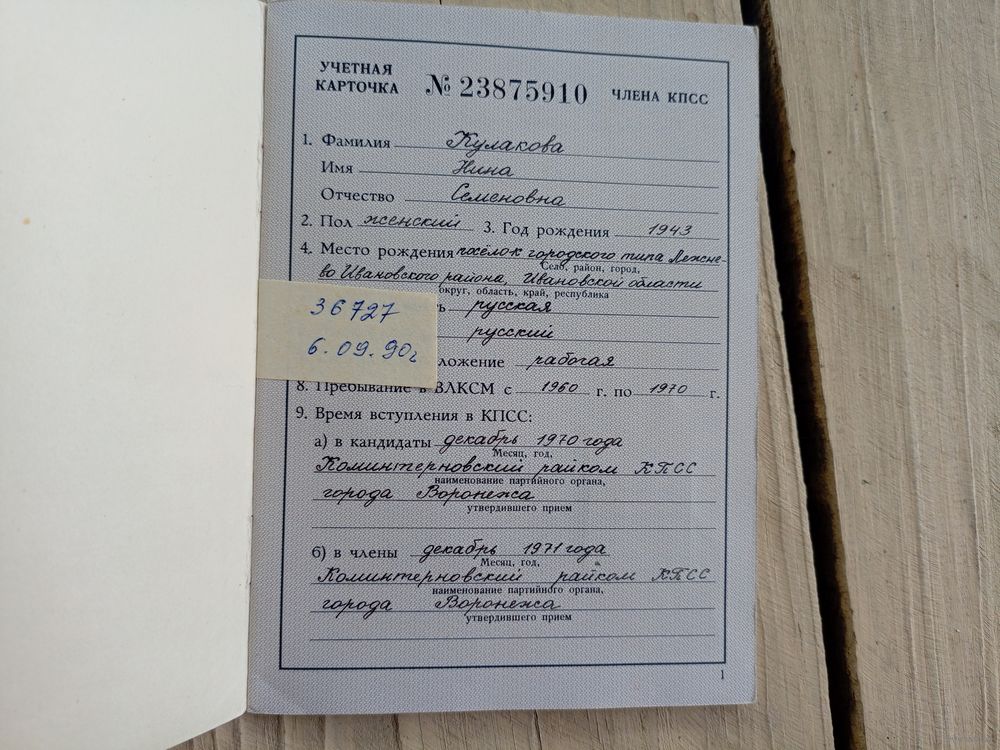 УЧЕТНАЯ
КАРТОЧКА № 23875910 ЧЛЕНА КПСС
1. Фамилия Кулакова
Имя Нина
Отчество Семеновна
2. Пол женский 3. Год рождения 1943
4. Место рождения посёлок городского типа Лежне-
Село, район, город,
во Ивановского района, Ивановской области
округ, область, край, республика
русская
36727
русский
6.09.90г
ложение рабочая
8. Пребывание в ВЛКСМ с 1960 г. по 1970 г.
9. Время вступления в КПСС:
а) в кандидаты декабрь 1970 года
Месяц, год,
Коминтерновский райком КПСС
наименование партийного органа,
города Воронежа
утвердившего прием
б) в члены декабрь 1971 года
Месяц, год,
Коминтерновский райком КПСС
наименование партийного органа,
города Воронежа
утвердившего прием
1